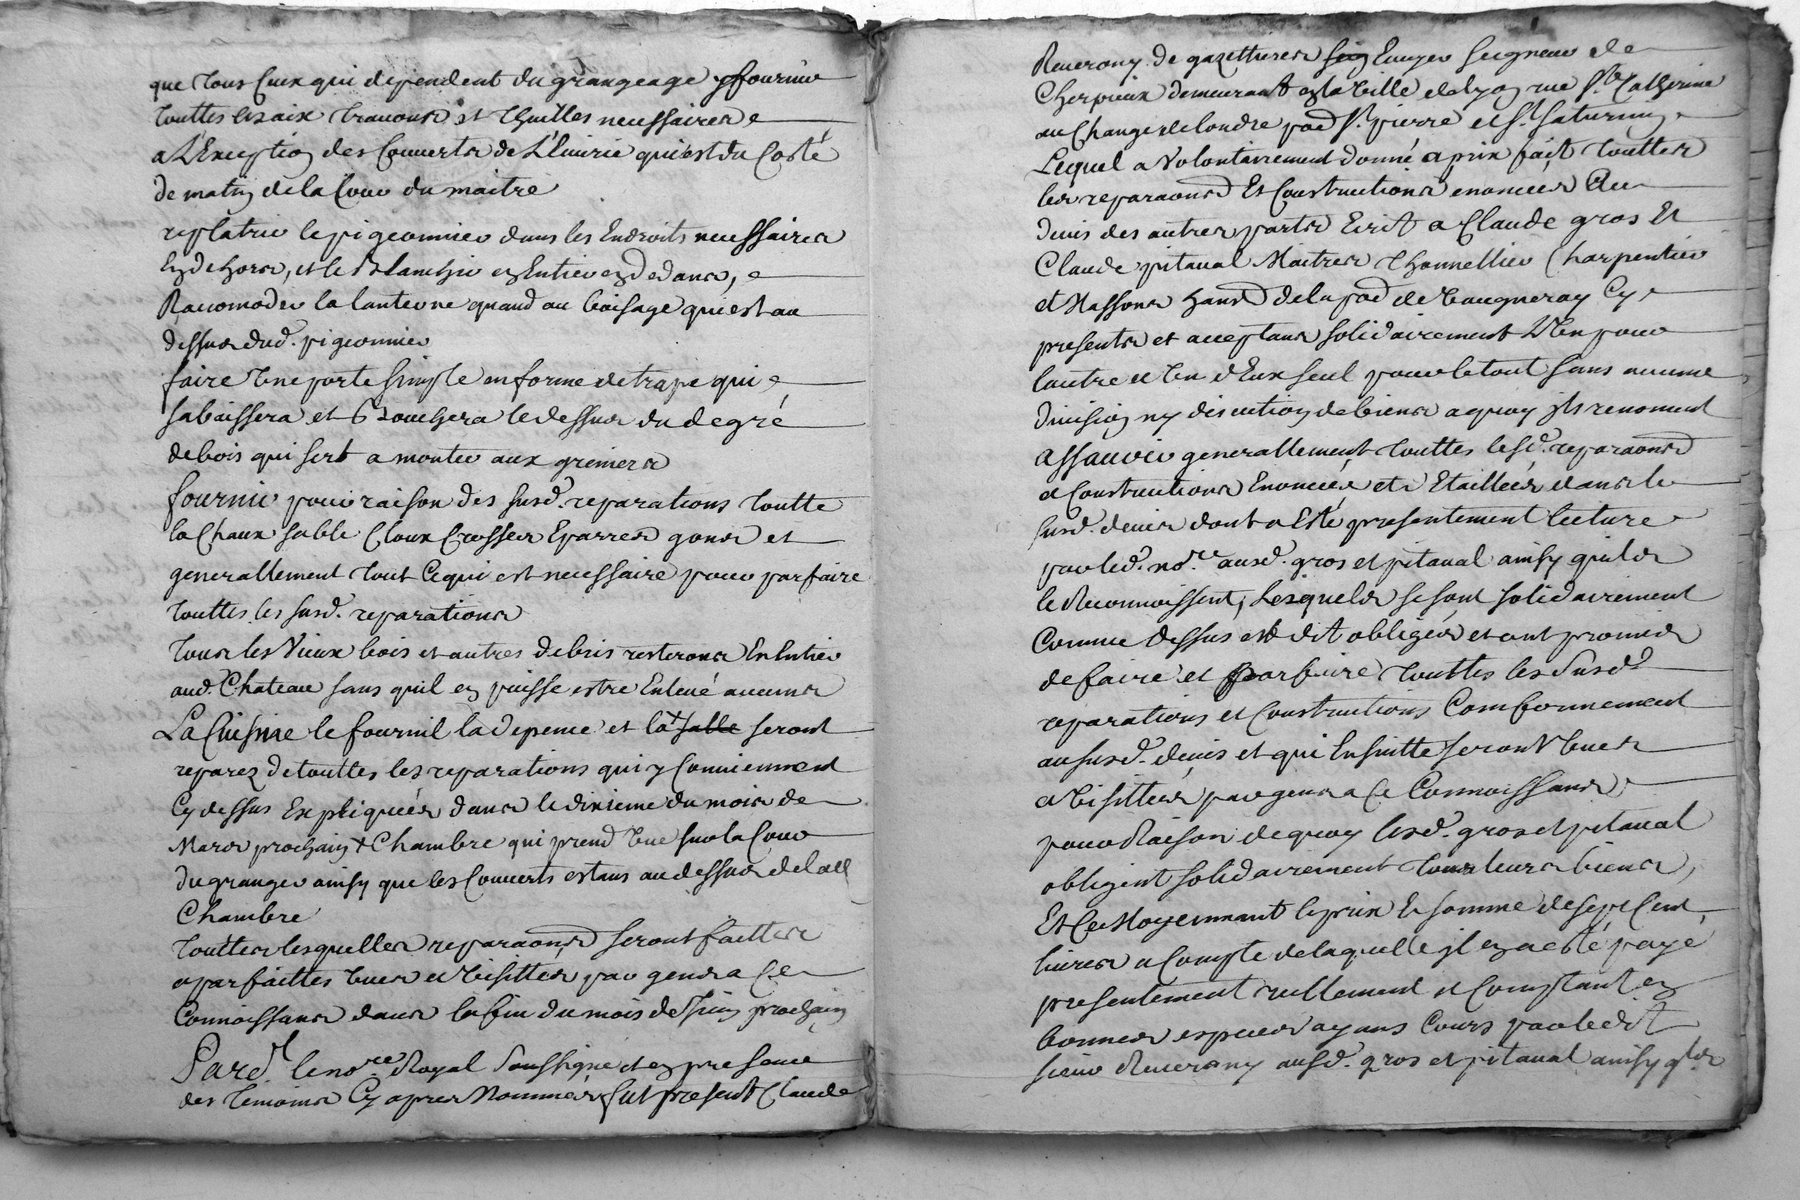 que tous ceux qui dependent du grangeage y fournir
touttes les aix travons et thuilles necessaires
a L'Exception des Couverts de L'Ecuirie qui est du Costé
de matin de la Cour du maitre
replatrir le pigeonnier dans les Endroits necessaires
En dehors, et le Blanchir en Entier en dedans,
Racomoder la lanterne quand au boisage qui est au
dessus dud. pigeonnier
faire Une porte simple en forme de trape qui
sabaissera et bouchera le dessus du degré
de bois qui sert a monter aux greniers
fournir pour raison des susd. reparations toutte
la Chaux sable Cloux Crosses Eparres gons et
generallement tout Ce qui est necessaire pour parfaire
touttes les susd. reparations
tous les Vieux bois et autres debris resterons En Entier
aud. Chateau sans quil en puisse estre Enlevé aucuns
La Cuisine le fournil la depence et la salle seront
reparez de touttes les reparations qui y Conviennent
Cy dessus Expliquées dans le dixieme du mois de
Mars prochain + Chambre qui prend Vue sur la Cour
du granger ainsy que les Couverts estans au dessus de lad
Chambre
touttes lesquelles reparaons seront faittes
et parfaittes Vues et Visittées par gens a Ce
Connoissans dans la fin du mois de Juin prochain
Pard. le no.re Royal Soussigné et en presence
des temoins Cy apres Nommés fut present Claude
Reverony de gazettieres Ecuyer Seigneur de
Cherpieux demeurant en la Ville de Lyon rue S.te Catherine
au Change de londre par S.t pierre et S.t Saturnin
Lequel a Volontairement donné a prix fait touttes
les reparaons Et Constructions enoncées Au
devis des autres parts Ecrit a Claude gros Et
Claude pitaval Maitres thonnellier Charpentier
et Massons hans de la par de Vaugneray Cy
presents et acceptans solidairement L'Un pour
lautre et Un d'Eux seul pour le tout sans aucune
division ny discution de biens a quoy ils renoncent
assavoir generallement touttes lesd. reparaons
et Constructions Enoncées et détaillées dans le
susd. devis dont a Esté presentement lecture
par led. no.re ausd. gros et pitaval ainsy quils
le Reconnoissent, Lesquels se sont solidairement
Comme dessus est dit obligés et ont promis
de faire et parfaire touttes les Susd.
reparations et Constructions Conformement
au susd. devis et qui Ensuitte seront Vues
et Visittées par gens a Ce Connoissans
pour Raison de quoy lesd. gros et pitaval
obligent solidairement tous leurs biens,
Et Ce Moyennant le prix Et somme de sept Cent
livres a Compte de laquelle il en a esté payé
presentement reellement et Comptant en
bonnes especes ayans Cours par ledit
sieur Reverony ausd. gros et pitaval ainsy qls